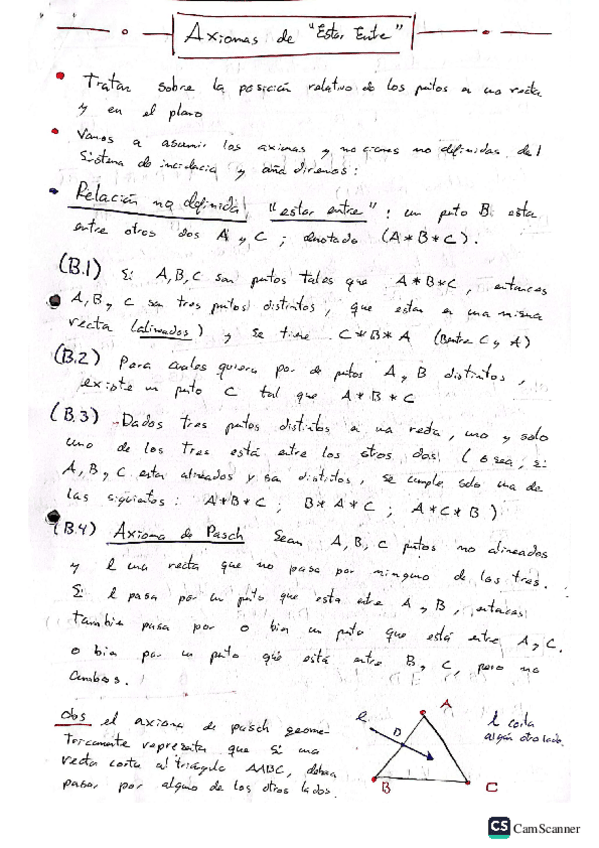 Axiomas de "Estar Entre"
• Tratan sobre la posición relativa de los putos a una recta
y en el plano
• Vamos a asumir los axiomas y nociones no definidas del
Sistema de incidencia y añadiremos:
• Relación no definida "estar entre": un puto B esta
entre otros dos A y C ; denotado (A*B*C).
(B.1) Si A,B,C son putos tales que A*B*C, entonces
A,B y C son tres putos distintos, que estan en una misma
recta (alineados) y se tiene C*B*A (B entre C y A)
(B.2) Para cuales quiera par de putos A y B distintos,
existe un puto C tal que A*B*C
(B.3) Dados tres putos distintos a una recta, uno y solo
uno de los tres está entre los otros dos. (o sea, si
A,B y C estan alineados y son distintos, se cumple solo una de
las siguientes: A*B*C ; B*A*C ; A*C*B)
(B.4) Axioma de Pasch Sean A,B,C putos no alineados
y l una recta que no pasa por ninguno de los tres.
Si l pasa por un puto que esta entre A y B, entonces
tambien pasa por o bien un puto que está entre A y C.
o bien por un puto que está entre B y C, pero no
ambos.
obs el axioma de pasch geome-
tricamente representa que si una
recta corta al triángulo ABC, debera
pasar por alguno de los otros lados.
A
l
D
B
C
l corta
algún otro lado.
CS CamScanner